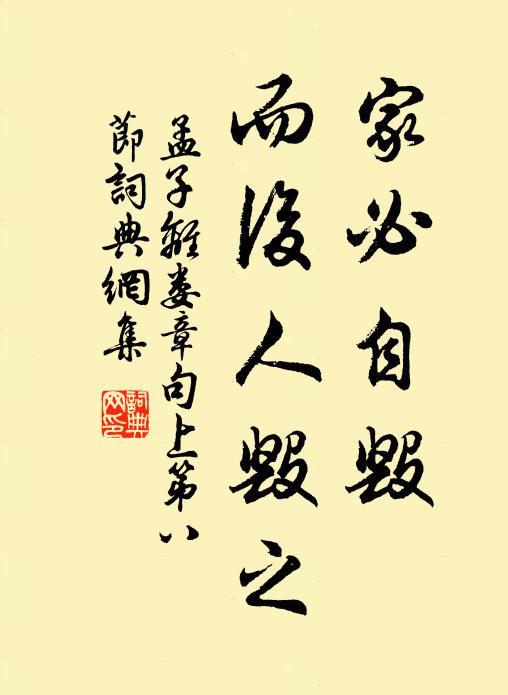 家必自毀
而後人毀之
孟子離婁章句上第八
節詞典網集
詞典
网印